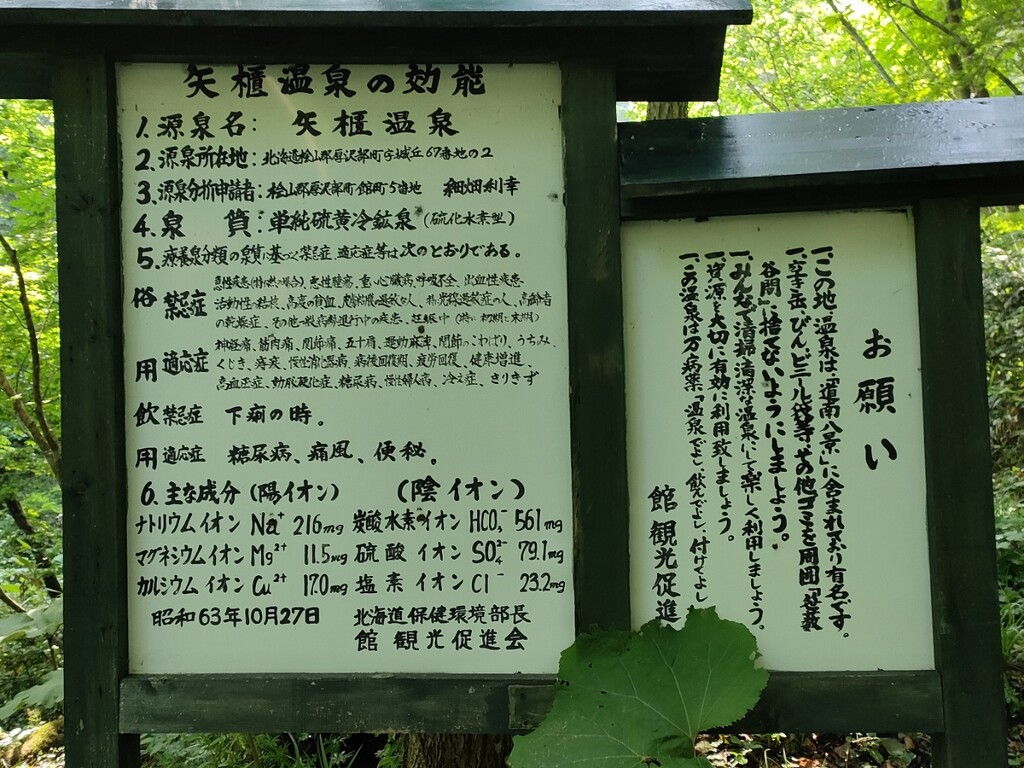 矢櫃温泉の効能
1.源泉名: 矢櫃温泉
2.源泉所在地:北海道桧山郡厚沢部町字城丘67番地の2
3.源泉分析申請者:桧山郡厚沢部町館町5番地 細畑利幸
4.泉 質:単純硫黄冷鉱泉(硫化水素型)
5.療養泉分類の泉質に基づく禁忌症、適応症等は次のとおりである。
浴用
禁忌症
急性疾患(特に熱の場合)、悪性腫瘍、重い心臓病、呼吸不全、出血性疾患
活動性の結核、高度の貧血、皮膚粘膜の過敏な人、特に光線過敏症の人、高齢者
の乾燥症、その他一般病勢進行中の疾患、妊娠中(特に初期と末期)
適応症
神経痛、筋肉痛、関節痛、五十肩、運動麻痺、関節のこわばり、うちみ、
くじき、痔疾、慢性消化器病、病後回復期、疲労回復、健康増進、
高血圧症、動脈硬化症、糖尿病、慢性婦人病、冷え症、きりきず
飲用
禁忌症 下痢の時。
適応症 糖尿病、痛風、便秘。
6.主な成分(陽イオン) (陰イオン)
ナトリウムイオン Na⁺ 216mg 炭酸水素イオン HCO₃⁻ 561mg
マグネシウムイオン Mg²⁺ 11.5mg 硫酸イオン SO₄²⁻ 79.1mg
カルシウムイオン Cu²⁺ 17.0mg 塩素イオン Cl⁻ 23.2mg
昭和63年10月27日 北海道保健環境部長
館 観光促進会
お願い
一、この地・温泉は、「道南八景」に含まれており有名です。
一、空き缶、びん、ビニール袋等、その他ゴミを周囲「
谷間」に捨てないようにしましょう。
一、みんなで清掃、清潔な温泉にて楽しく利用しましょう。
一、資源を大切に有効に利用致しましょう。
一、この温泉は万病薬「温泉でよし、飲んでよし、付けてよし
館 観光促進